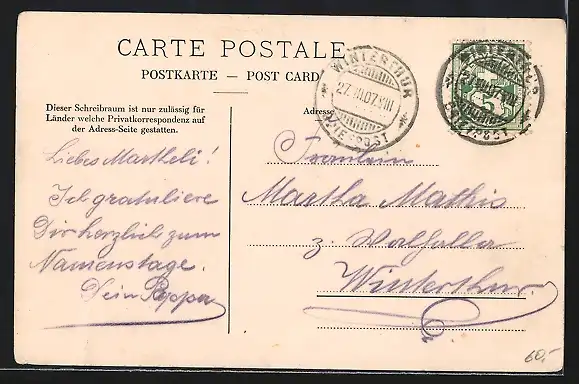 CARTE POSTALE
POSTKARTE — POST CARD
WINTERTHUR
27.VII.07.VIII
BRIEFPOST
WINTERTHUR
27.VII.07.VIII
BRIEFPOST
5
Dieser Schreibraum ist nur zulässig für
Länder welche Privatkorrespondenz auf
der Adress-Seite gestatten.
Adresse
Liebes Martheli!
Ich gratuliere
Dir herzlich zum
Namenstage.
Dein Pappa
Fräulein
Martha Mathis
z. Walhalla
Winterthur.
60,-